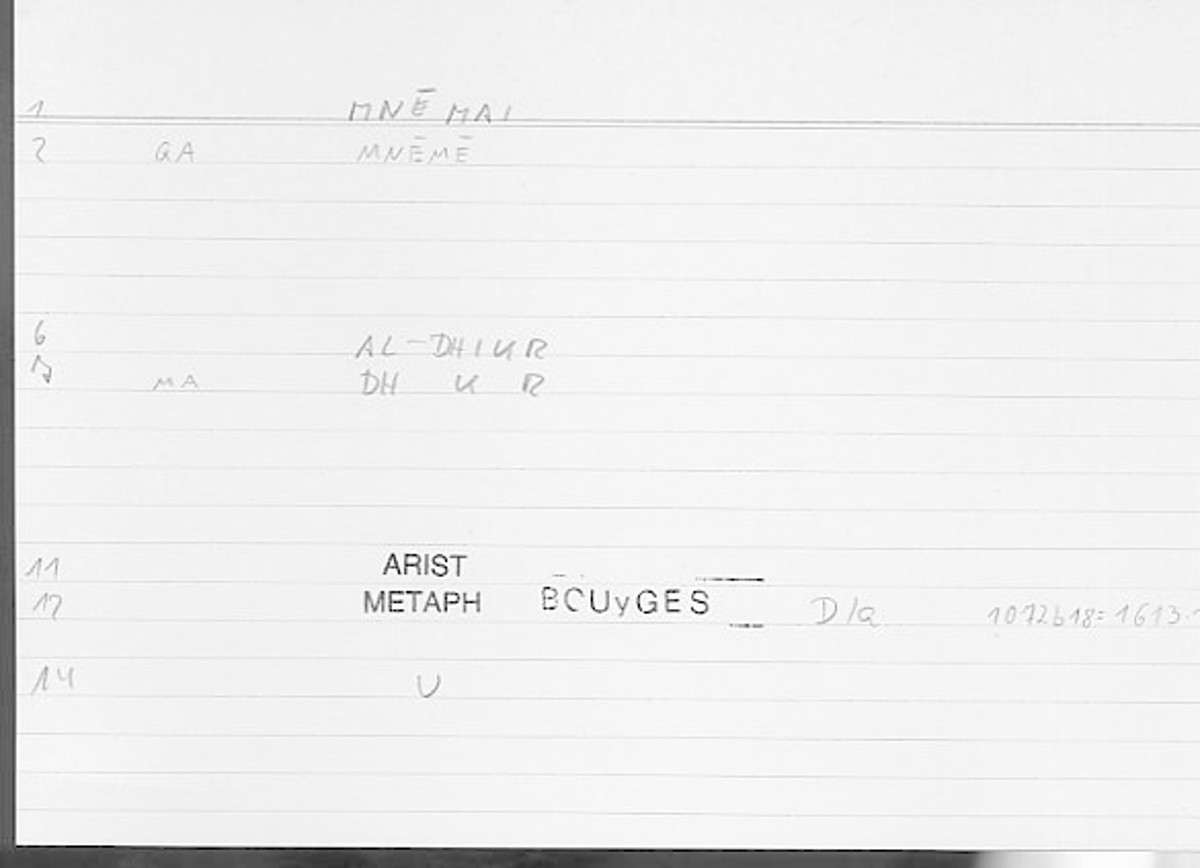 1 MNĒMAI
2 QA MNĒMĒ
6 AL-DHIKR
7 MA DH K R
11 ARIST
12 METAPH BOUyGES D/Q 1072b18=1613.1
14 U